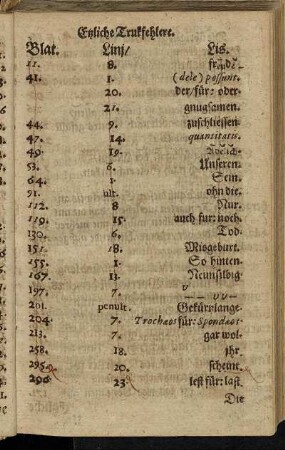 Etzliche Trukfehlere.
Blat. Linj/ Lis.
11. 8.
41. 1. (dele) possunt.
20. der/für: oder
21. gnugsamen.
44. 9. zuschliessen
47. 14. quantitatis.
49. 19.
53. 6. Unseren.
64. 1. Sein.
91. ult. ohn die.
112. 8 Nur.
119. 15. auch fur: noch.
130. 6. Tod.
151. 18. Misgeburt.
155. 1. So hinten.
167. 13. Neunsilbig
197. 7.
201. penult. Gekürtzlange
204. 7. Trochaos für: Spondaos.
213. 7. gar wol.
258. 18. ihr.
295. 20. scheint.
296 23 lest für: last.
Die